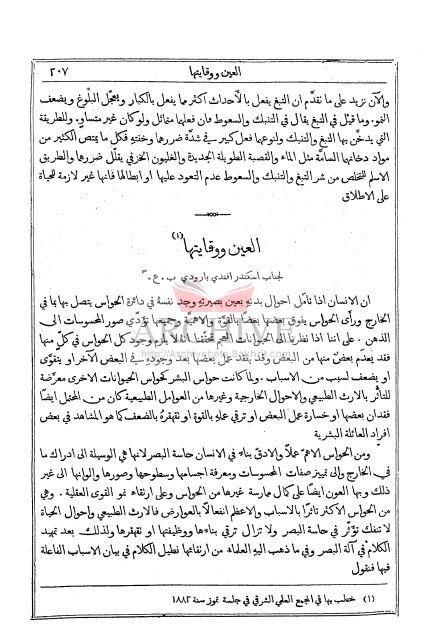 العين ووقايتها ٢٠٧
والآن نزيد على ما تقدَّم ان التبغ يفعل بالأحداث أكثر مما يفعل بالكبار ويعجل البلوغ ويضعف
النمو. وما قيل في التبغ يقال في التنبك والسعوط فان فعلها متماثل ولو كان غير متساوٍ. وللطريقة
التي يدخَّن بها التبغ والتنبك ولنوعها فعل كبير في شدَّة ضررها وخفتهِ فكل ما يمتص الكثير من
مواد دخانها السامَّة مثل الماء والقصبة الطويلة الجديدة والغليون الخزفي يقلّل ضررها والطريق
الاسلم للتخلص من شر التبغ والتنبك والسعوط عدم التعود عليها او ابطالها فانها غير لازمة للحياة
على الاطلاق
العين ووقايتها (١)
لجناب اسكندر افندي بارودي ب. ع.
ان الانسان اذا تأمل احوال بدنهِ بعين بصيرتهِ وجد نفسهُ في دائرة الحواس يتصل بها بما في
الخارج ورأى الحواس يفوق بعضها بعضًا بالقوَّة والاهمية وجميعها تؤدّي صور المحسوسات الى
الذهن. على اننا اذا نظرنا الى الحيوانات العجم تحققنا انهُ لا يلزم وجود كل الحواس في كلٍّ منها
فقد يُعدَم بعضٌ منها من البعض وقد يفقد عمل بعضها بعد وجوده في البعض الآخر او يتقوَّى
او يضعف لسبب من الاسباب. ولما كانت حواس البشر كحواس الحيوانات الاخرى معرَّضة
للتأثر بالارث الطبيعي والاحوال الخارجية وغيرها من العوامل الطبيعية كان من المحتمل ايضًا
فقدان بعضها او خسارة عمل البعض او ترقي عملهِ بالقوة او تقهقرهُ بالضعف كما هو المشاهد في بعض
افراد العائلة البشرية
ومن الحواس الاهمّ عملًا والادقّ بناء في الانسان حاسة البصر لانها هي الوسيلة الى ادراك ما
في الخارج والى تمييز صفات المحسوسات ومعرفة اجسامها وسطوحها وصورها والوانها الى غير
ذلك وبها العون ايضًا على كمال ممارسة غيرها من الحواس وعلى ارتقاء نمو القوى العقلية. وهي
من الحواس الاكثر تأثرًا بالاسباب والاعظم انفعالًا بالعوارض فالارث الطبيعي واحوال الحياة
لا تنفك تؤثّر في حاسة البصر ولا تزال ترقي بناءها ووظيفتها او تقهقرها ولذلك بعد تمهيد
الكلام في آلة البصر وفي ما ذهب اليهِ العلماء من ارتقائها نطيل الكلام في بيان الاسباب الفاعلة
فيها فنقول
(١) خطب بها في المجمع العلمي الشرقي في جلسة تموز سنة ١٨٨٢
ARCHIVE